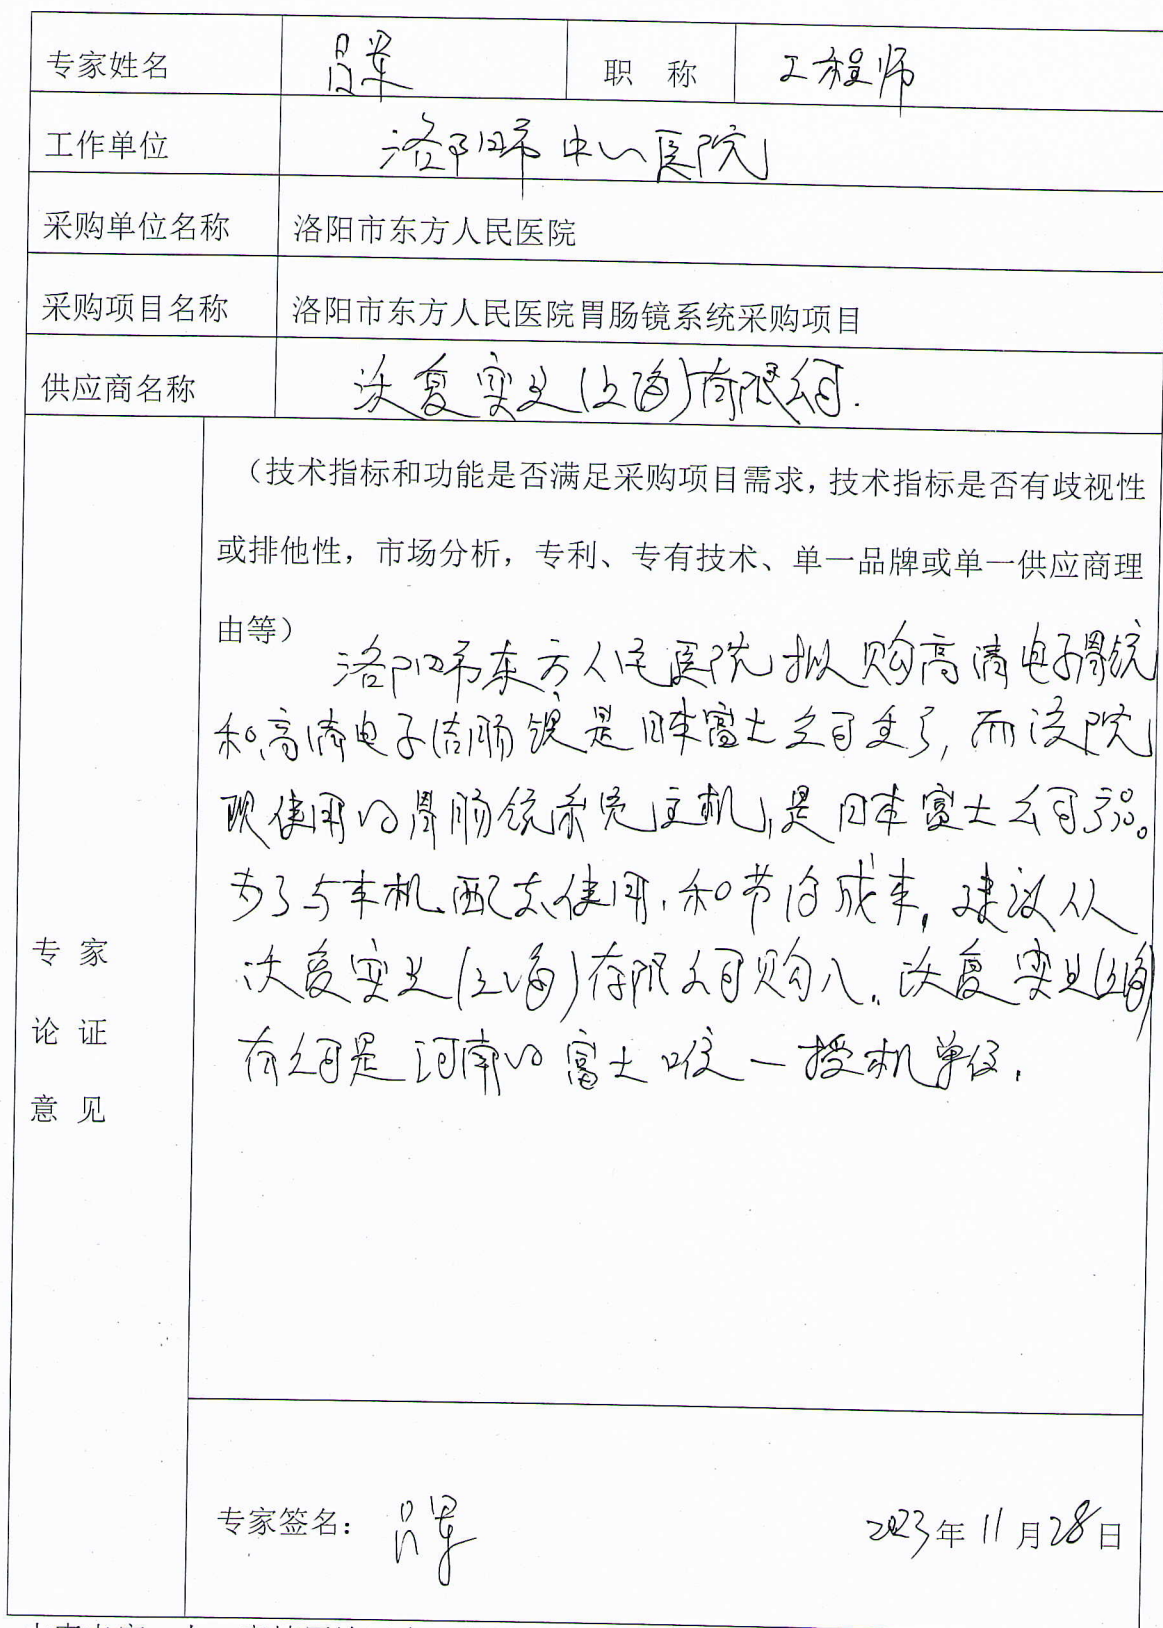 专家姓名 吕军 职 称 工程师
工作单位 洛阳市中心医院
采购单位名称 洛阳市东方人民医院
采购项目名称 洛阳市东方人民医院胃肠镜系统采购项目
供应商名称 沃复实业(上海)有限公司.
（技术指标和功能是否满足采购项目需求，技术指标是否有歧视性
或排他性，市场分析，专利、专有技术、单一品牌或单一供应商理
由等）
洛阳市东方人民医院拟购高清电子胃镜
和高清电子结肠镜是日本富士公司, 而该院
现使用的胃肠镜系统主机,是日本富士公司产品。
为了与本机配套使用,和节约成本,建议从
沃复实业(上海)有限公司购入。沃复实业(上海)
有公司是河南的富士唯一授权单位.
专 家
论 证
意 见
专家签名： 吕军 2023年11月28日